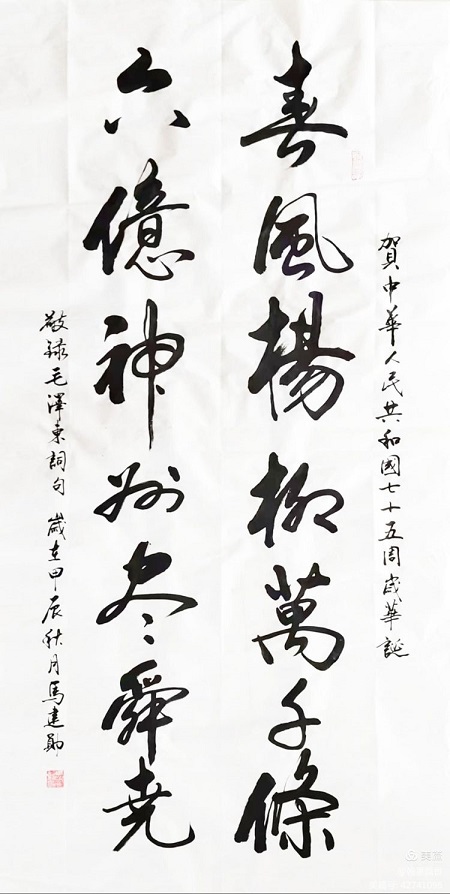 賀中華人民共和國七十五周歲華誕
春風楊柳萬千條
六億神州尽舜堯
敬録毛澤東詞句 歲在甲辰秋月馬建勛
美篇